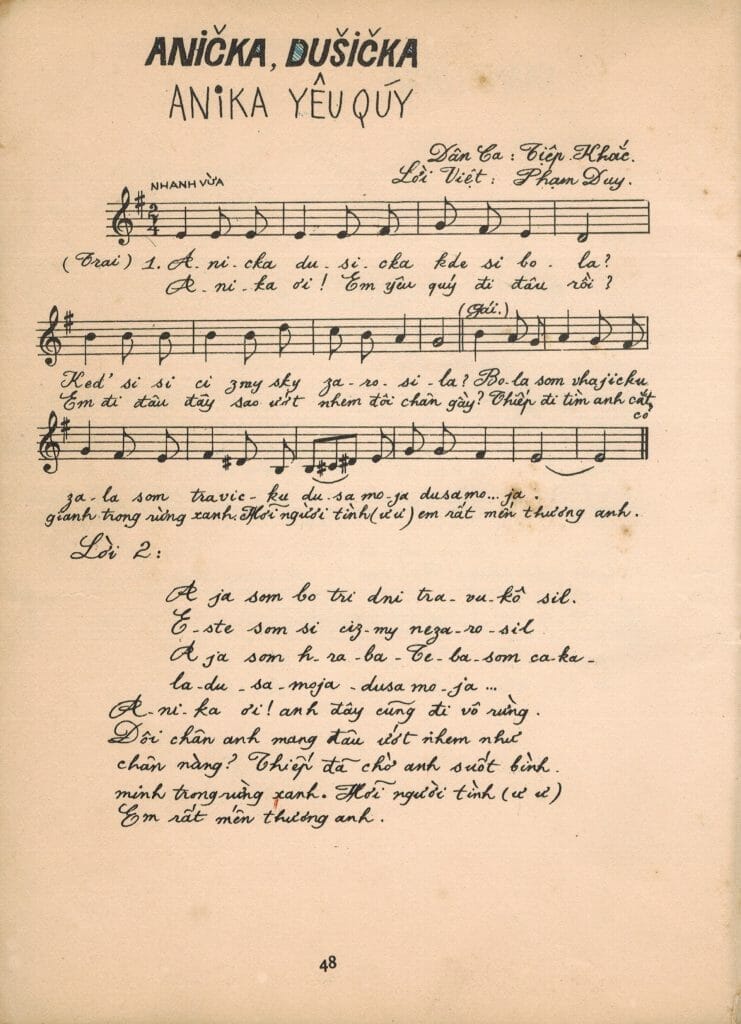 ANIČKA, DUŠIČKA
ANIKA YÊU QÚY
Dân Ca : Tiệp Khắc.
Lời Việt : Phạm Duy.
NHANH VỪA
2/4
(Trai) 1. A-ni-cka du-si-cka kde si bo-la?
A-ni-ka ơi! Em yêu quý đi đâu rồi?
(Gái.)
Ked' si si ci zmy sky za-ro-si-la? Bo-la som vhajicku
Em đi đâu đây sao ướt nhem đôi chân gày? Thiếp đi tìm anh cắt
cỏ
za-la som travic-ku du-sa mo-ja dusamo...ja.
gianh trong rừng xanh. Hỡi người tình (ư ư) em rất mến thương anh.
Lời 2:
A ja som bo tri dni tra-vu-kô sil.
E-ste som si ciz-my neza-ro-sil
A ja som h-ra-ba-Te-ba-som ca-ka-
la-du-sa-moja-dusa mo-ja...
A-ni-ka ơi! anh đây cũng đi vô rừng.
Đôi chân anh mang đâu ướt nhem như
chân nàng? Thiếp đã chờ anh suốt bình
minh trong rừng xanh. Hỡi người tình (ư ư)
Em rất mến thương anh.
48